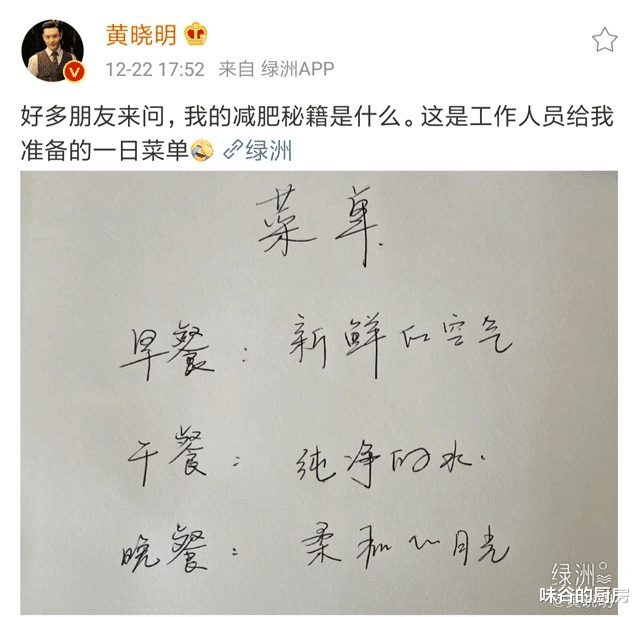 黄晓明
12-22 17:52 来自 绿洲APP
好多朋友来问，我的减肥秘籍是什么。这是工作人员给我
准备的一日菜单 绿洲
菜单
早餐：新鲜的空气
干餐：纯净的水.
晚餐：柔和的月光
绿洲
@黄晓明
味谷的厨房